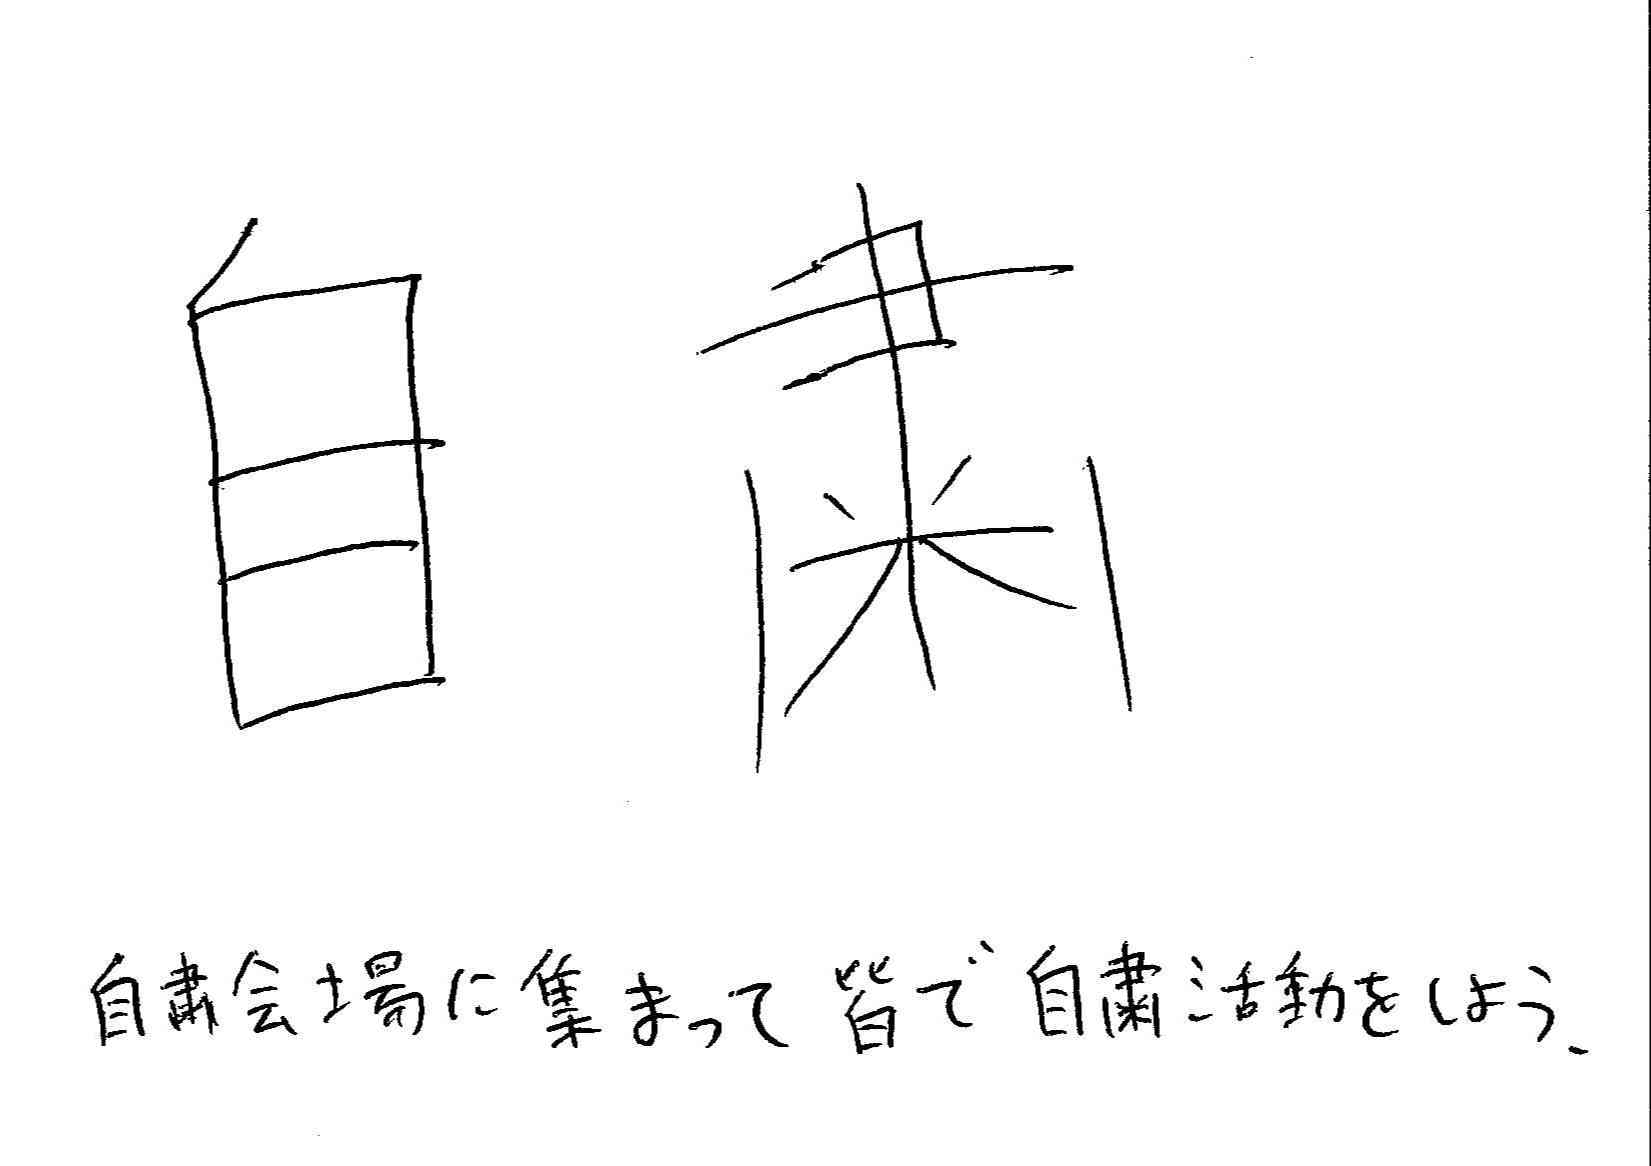 自粛
自粛会場に集まって皆で自粛活動をしよう、